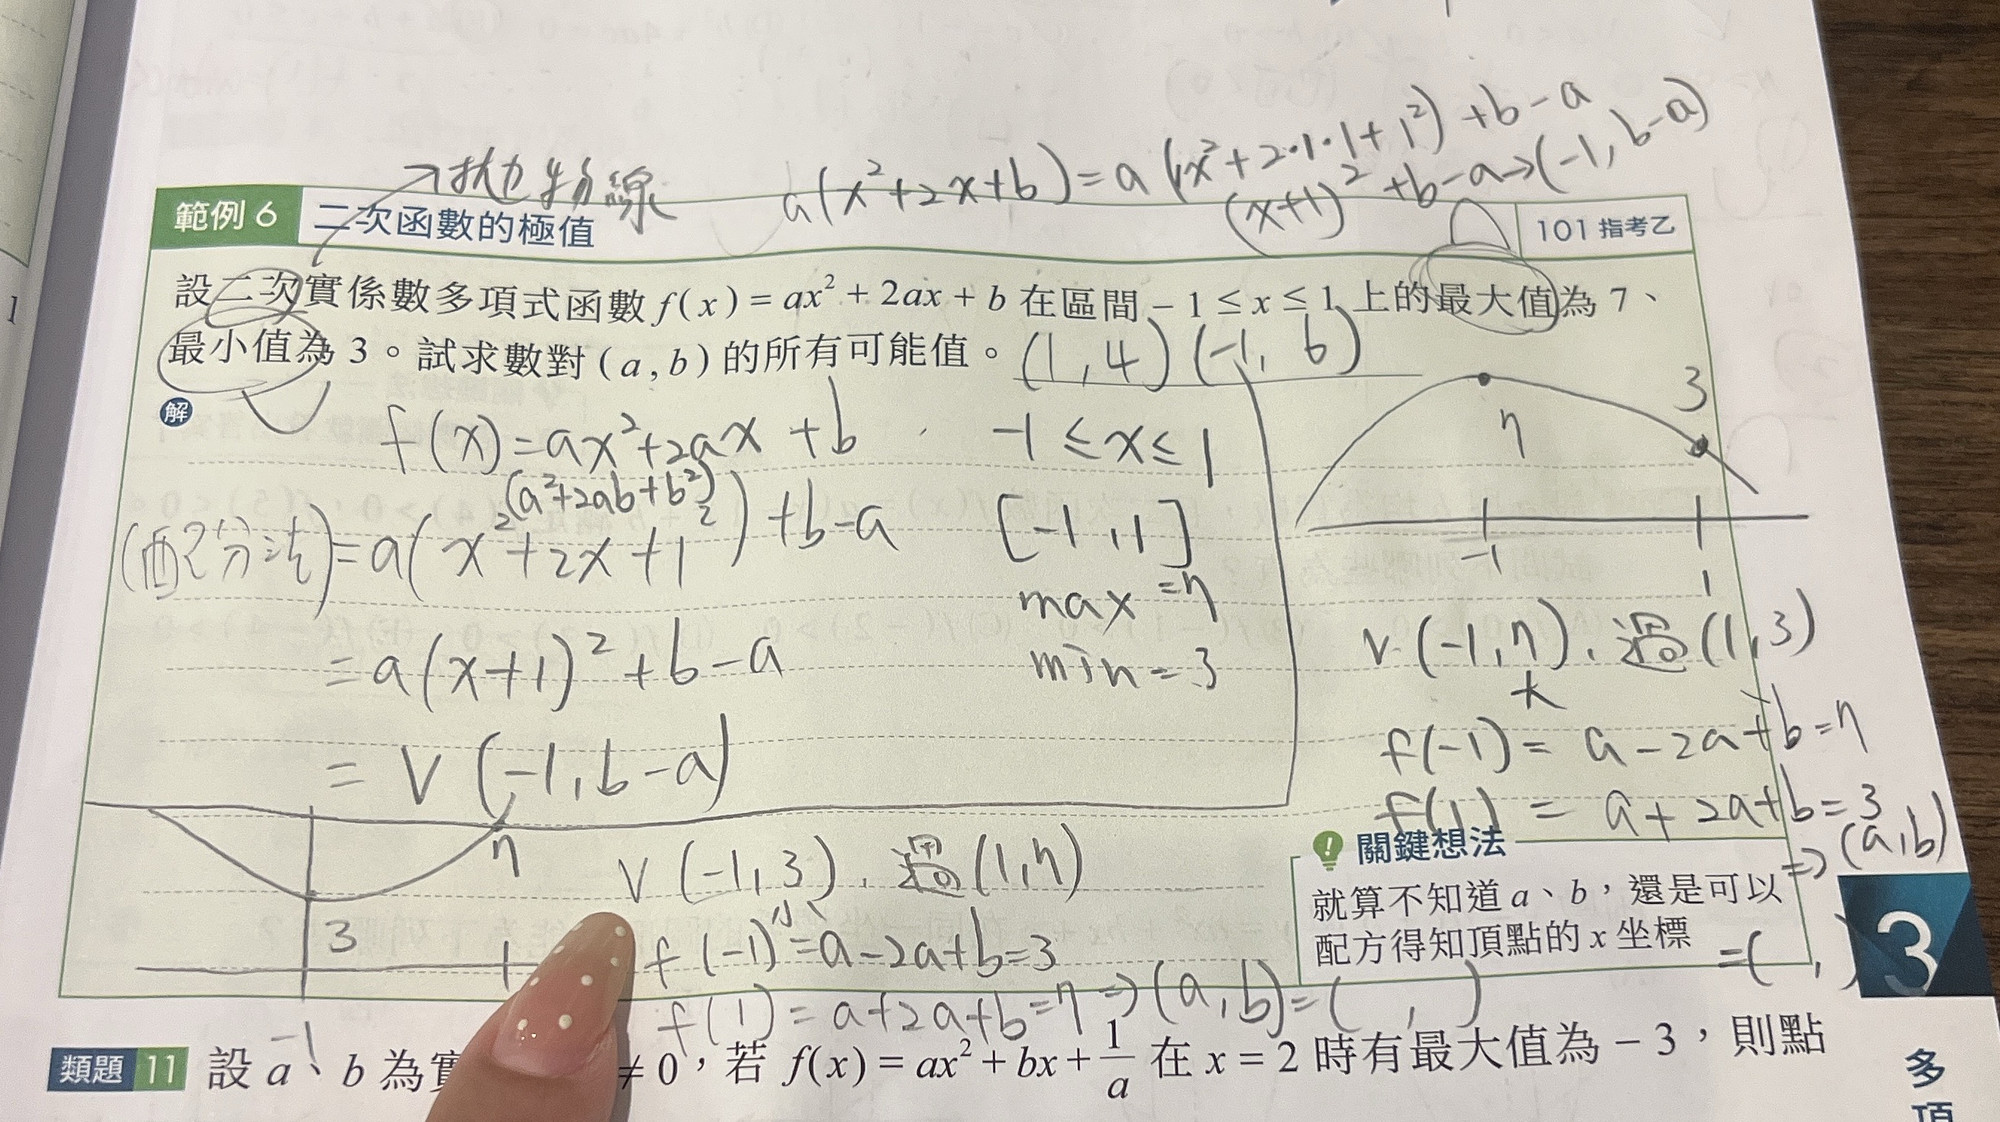 →拋物線
a(x²+2x+b)=a(x²+2·1·1+1²)+b-a
(x+1)²+b-a→(-1, b-a)
範例 6 二次函數的極值 101 指考乙
設二次實係數多項式函數 f(x) = ax² + 2ax + b 在區間 – 1 ≤ x ≤ 1 上的最大值為 7、
最小值為 3。試求數對 (a, b) 的所有可能值。(1, 4) (-1, 6)
解
f(x)=ax²+2ax+b -1≤x≤1
(a²+2ab+b²)
(配分法)=a(x²+2x+1²)+b-a [-1,1]
max=7
=a(x+1)²+b-a min=3
=V(-1,b-a)
3
7
-1 1
1
V(-1,7)、過(1,3)
大
f(-1)=a-2a+b=7
f(1)=a+2a+b=3
⇒(a,b)
=( , )
7
3
1
-1
V(-1,3)、過(1,7)
小
f(-1)=a-2a+b=3
f(1)=a+2a+b=7⇒(a,b)=( , )
關鍵想法
就算不知道 a、b，還是可以
配方得知頂點的 x 坐標
3
類題 11 設 a、b 為實 ≠ 0，若 f(x) = ax² + bx + 1/a 在 x = 2 時有最大值為 – 3，則點
多
項
1